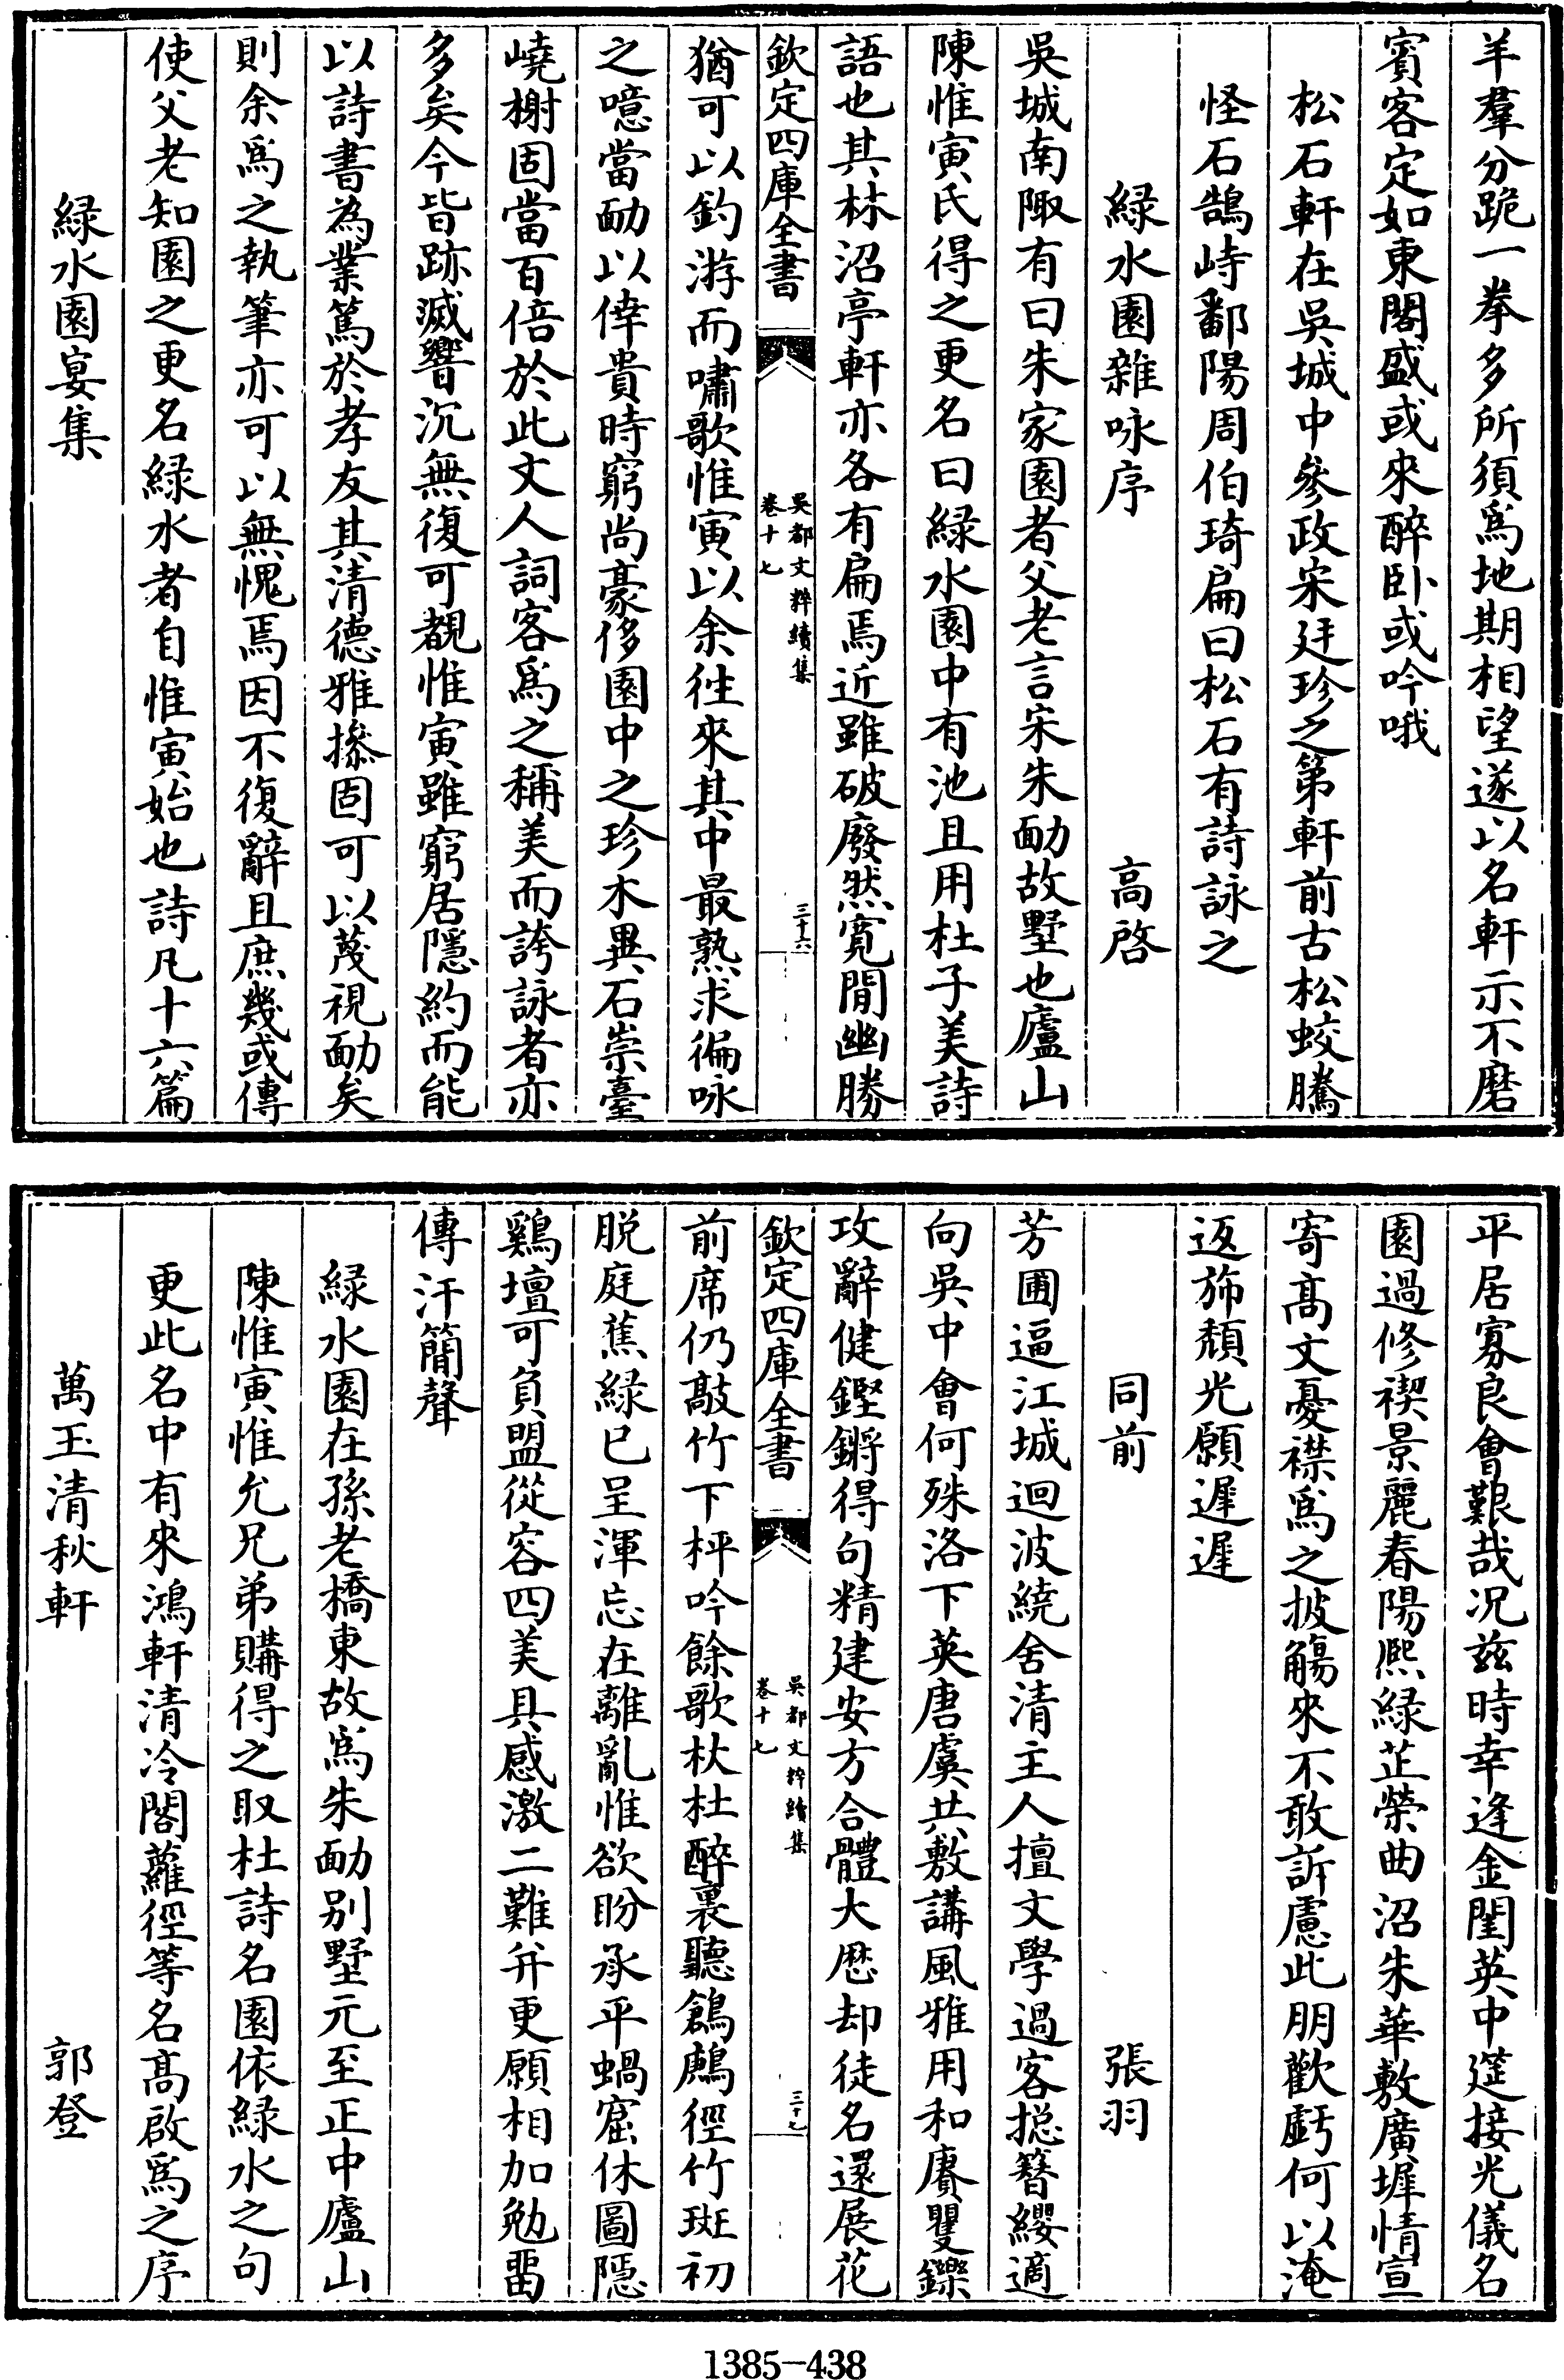 羊羣分跪一拳多所須為地期相望遂以名軒示不磨
賓客定如東閣盛或來醉卧或吟哦
松石軒在吳城中參政宋廷珍之第軒前古松蛟騰
怪石鵠峙鄱陽周伯琦扁曰松石有詩詠之
緑水園雜咏序 高啓
吳城南陬有曰朱家園者父老言宋朱勔故墅也廬山
陳惟寅氏得之更名曰緑水園中有池且用杜子美詩
語也其林沼亭軒亦各有扁焉近雖破廢然寛閒幽勝
欽定四庫全書 吳都文粹續集 卷十七 三十六
猶可以釣游而嘯歌惟寅以余徃來其中最熟求徧咏
之噫當勔以倖貴時窮尚豪侈園中之珍木異石崇臺
嶢榭固當百倍於此文人詞客為之稱美而誇詠者亦
多矣今皆跡滅響沉無復可覩惟寅雖窮居隱約而能
以詩書為業篤於孝友其清德雅操固可以蔑視勔矣
則余為之執筆亦可以無愧焉因不復辭且庶幾或傳
使父老知園之更名緑水者自惟寅始也詩凡十六篇
緑水園宴集
平居寡良會艱哉况兹時幸逢金閨英中筵接光儀名
園過修禊景麗春陽熙緑芷榮曲沼朱華敷廣墀情宣
寄髙文憂襟為之披觴來不敢訴慮此朋歡虧何以淹
返斾頽光願遲遲
同前 張羽
芳圃逼江城迴波繞舍清主人擅文學過客揔簮纓適
向吳中會何殊洛下英唐虞共敷講風雅用和賡矍鑠
攻辭健鏗鏘得句精建安方合體大厯却徒名還展花
欽定四庫全書 吳都文粹續集 卷十七 三十七
前席仍敲竹下枰吟餘歌杕杜醉裏聽鶬鶊徑竹斑初
脱庭蕉緑已呈渾忘在離亂惟欲盼承平蝸窟休圖隱
鷄壇可負盟從容四美具感激二難并更願相加勉畱
傳汗簡聲
緑水園在孫老橋東故為朱勔别墅元至正中廬山
陳惟寅惟允兄弟購得之取杜詩名園依緑水之句
更此名中有來鴻軒清冷閣蘿徑等名髙啟為之序
萬玉清秋軒 郭登
1385-438